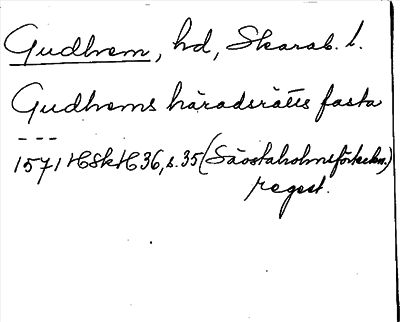 Gudhem, hd, Skarab. l.
Gudhems häradsrätts fasta
---
1571 HSkH 36, s. 35 (Säostaholmsförteckn.)
regest.